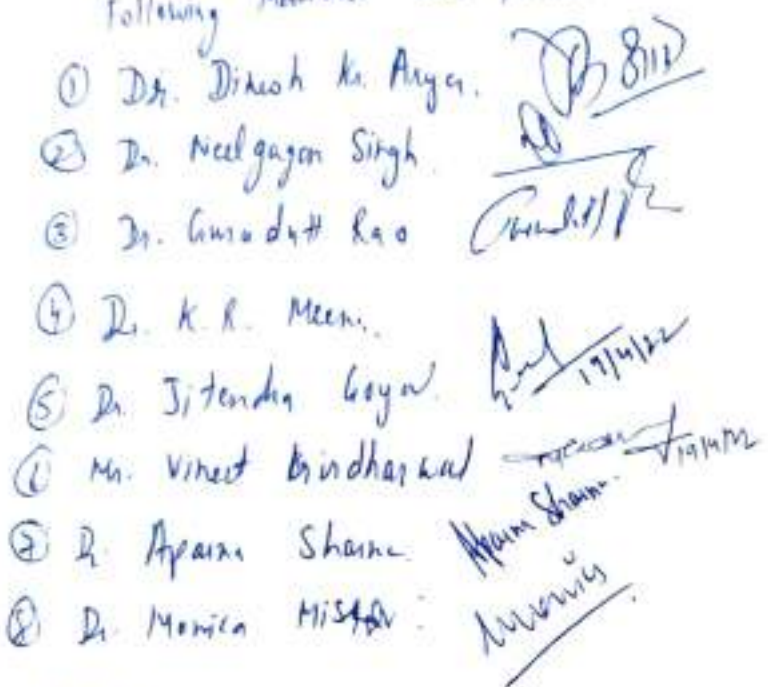 Following
① Dr. Dinesh Kr. Arya.
② Dr. Neelgagan Singh
③ Dr. Gurudutt Rao
④ Dr. K. R. Meena.
⑤ Dr. Jitendra Goyal 19/4/22
⑥ Mr. Vineet 19/4/22
⑦ Dr Aparna Sharma Aparna Sharma
⑧ Dr. Monica Monica